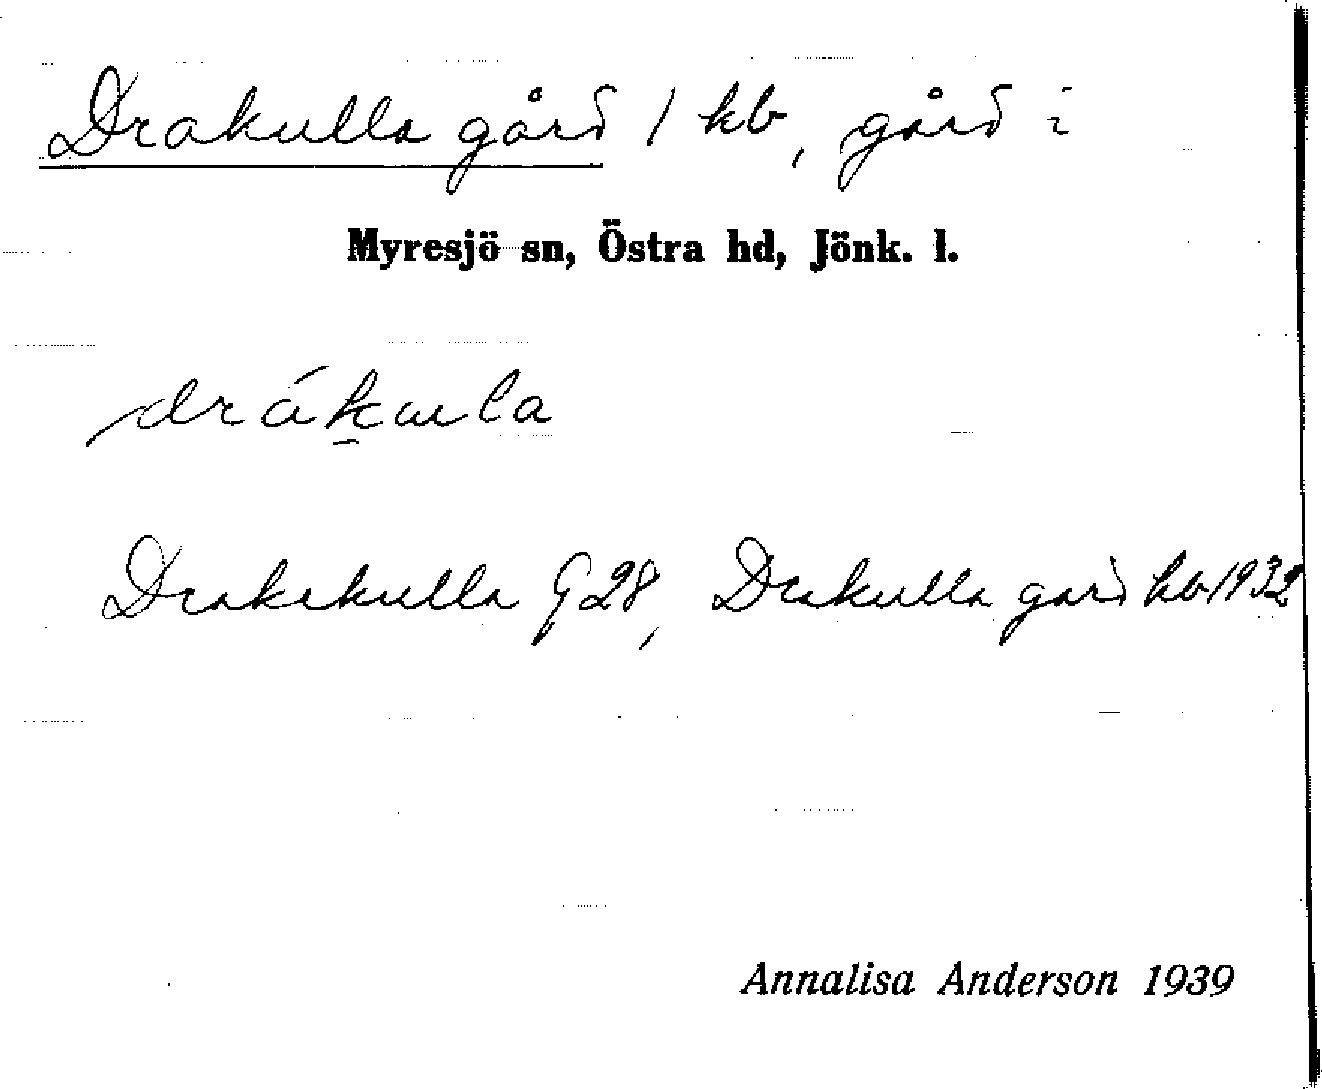 Drakulla gård / kb, gård i
Myresjö sn, Östra hd, Jönk. l.
drákula
Drakekulla G 28, Drakulla gård kb 1932
Annalisa Anderson 1939